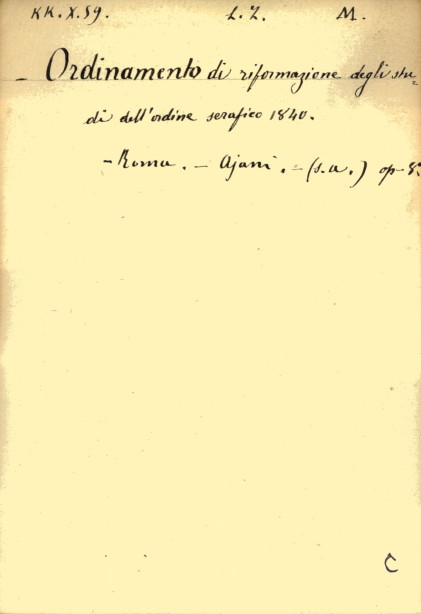 KK.X.59. L. Z. M.
- Ordinamento di riformazione degli stu=
di dell'ordine serafico 1840.
- Roma. - Ajani. - (s.a.) op-8º
C